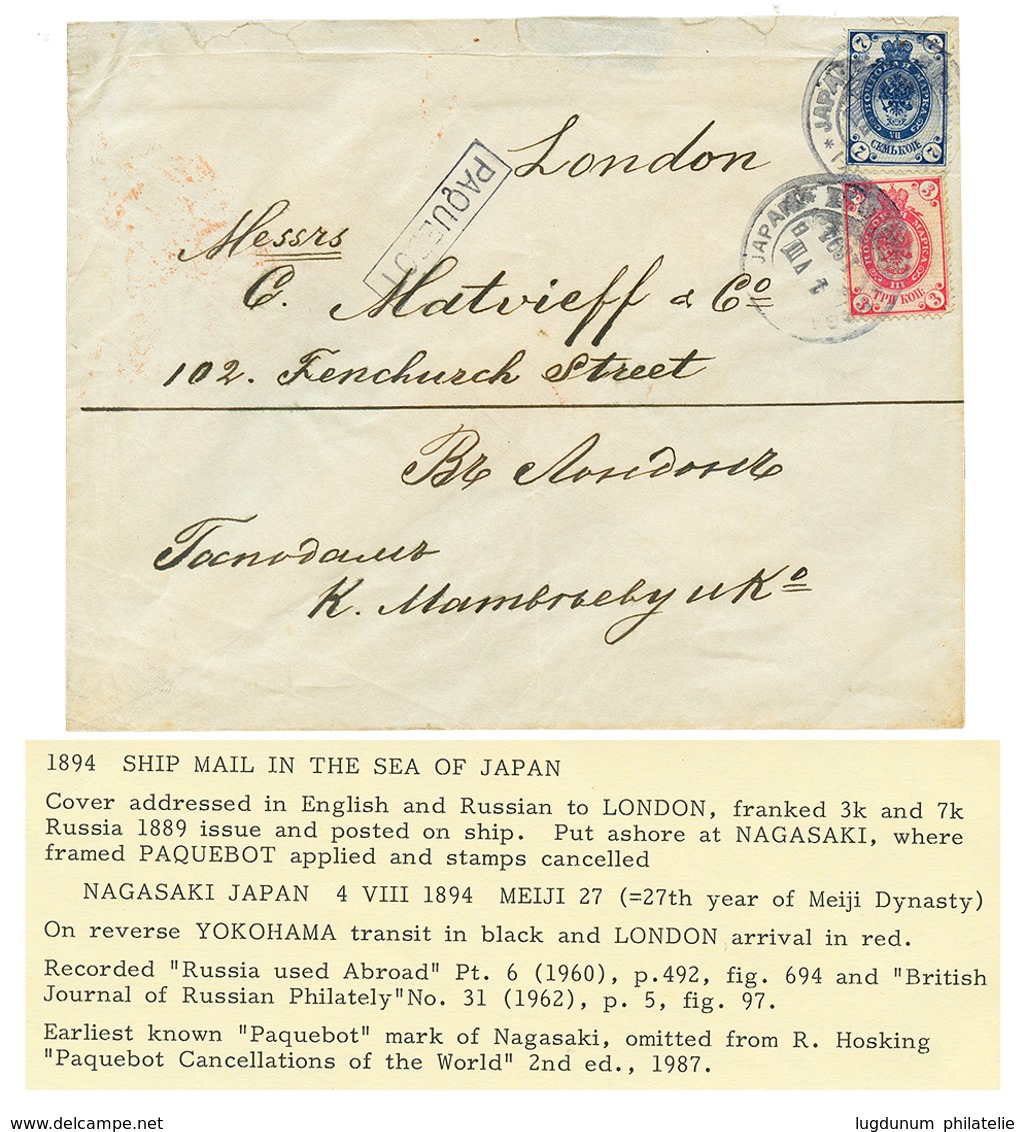 London
PAQUEBOT
Messrs
C. Matvieff & Co
102. Fenchurch Street
Въ Лондонъ
Господамъ
К. Матвѣеву и Ко
7 7
ПОЧТОВАЯ МАРКА
VII
СЕМЬ КОП.
7 7
3
ПОЧТОВАЯ МАРКА
III
ТРИ КОП.
3 3
JAPAN
JAPAN
VIII
1894 SHIP MAIL IN THE SEA OF JAPAN
Cover addressed in English and Russian to LONDON, franked 3k and 7k
Russia 1889 issue and posted on ship. Put ashore at NAGASAKI, where
framed PAQUEBOT applied and stamps cancelled
NAGASAKI JAPAN 4 VIII 1894 MEIJI 27 (=27th year of Meiji Dynasty)
On reverse YOKOHAMA transit in black and LONDON arrival in red.
Recorded "Russia used Abroad" Pt. 6 (1960), p.492, fig. 694 and "British
Journal of Russian Philately"No. 31 (1962), p. 5, fig. 97.
Earliest known "Paquebot" mark of Nagasaki, omitted from R. Hosking
"Paquebot Cancellations of the World" 2nd ed., 1987.
www.delcampe.net
lugdunum philatelie